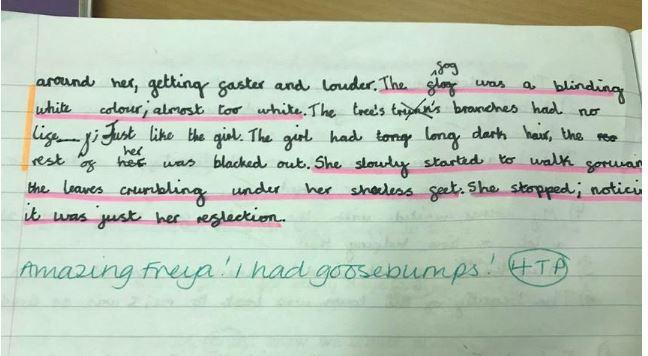 fog
around her, getting faster and louder. The glog was a blinding
white colour; almost too white. The tree's branches had no
life; Just like the girl. The girl had tong long dark hair, the
her
rest of hes was blacked out. She slowly started to walk forwar
the leaves crumbling under her shoeless feet. She stopped; notici
it was just her reflection.
Amazing Freya! I had goosebumps! 4TP